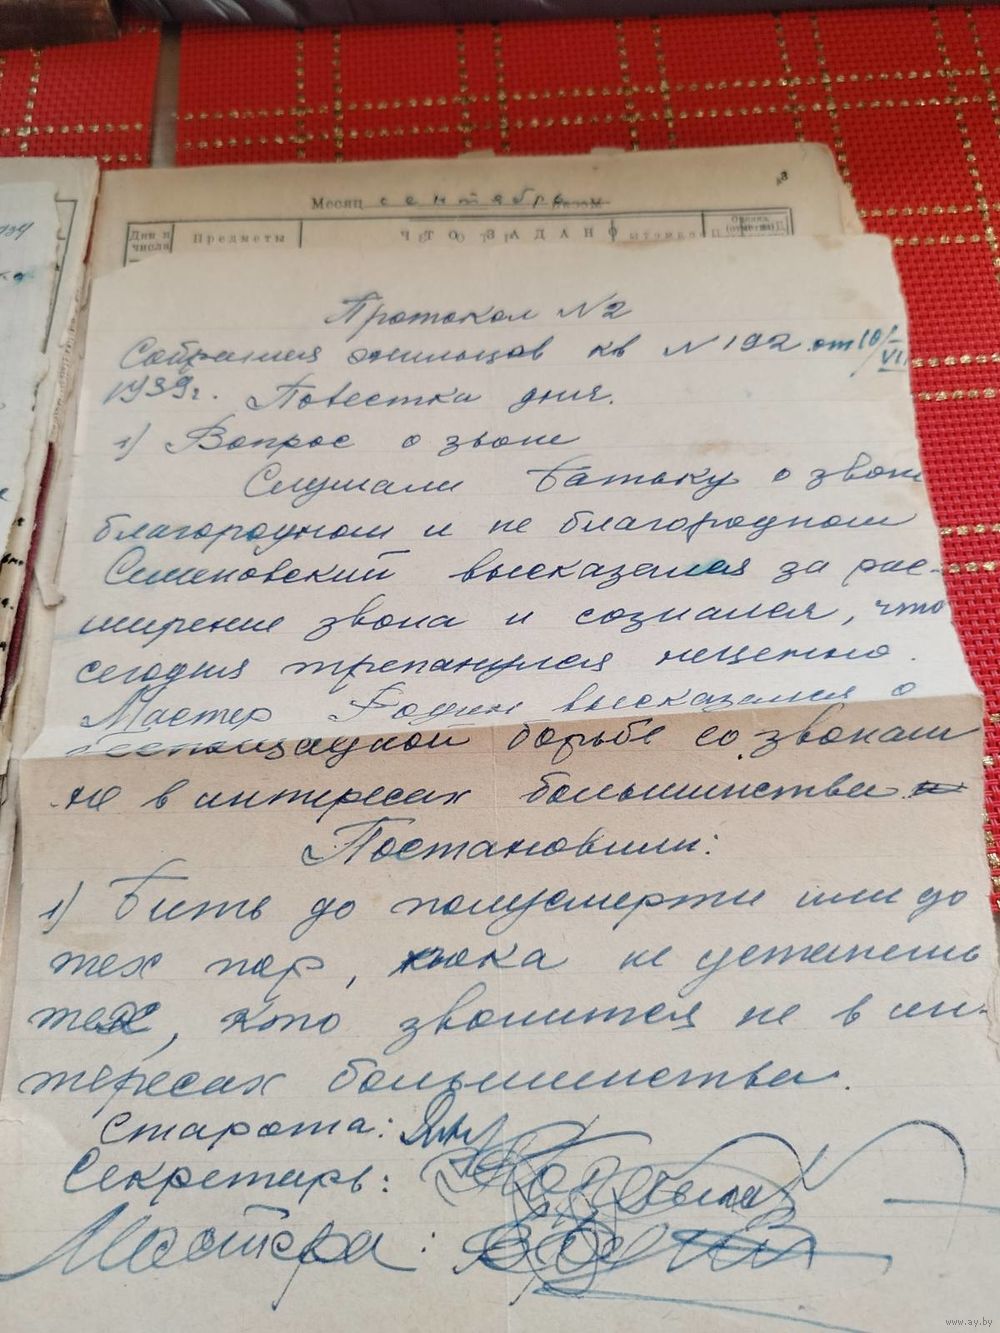 Месяц сентябрь
Дни и числа
Предметы
Протокол N2
Собрания жильцов кв N 192 от 10/VII
1939г. Повестка дня.
1) Вопрос о звоне
Слушали Батьку о звоне
благородном и не благородном
Симановский высказался за рас-
ширение звона и сознался, что
сегодня трепанулся нецепно.
Мастер Родин высказался о
беспощадной борьбе со звоном
не в интересах большинства
Постановили:
1) Бить до полусмерти или до
тех пор, пока не устанешь
тех, кто звонится не в ин-
тересах большинства.
Старота:
Секретарь:
Мастера:
www.ay.by